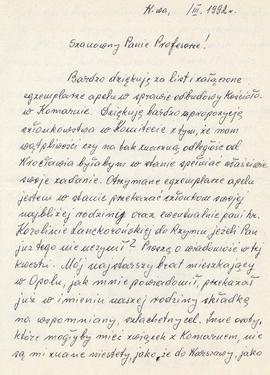 W-wa, /III. 1992 r.
Szanowny Panie Profesorze!
Bardzo dziękuję za list i załączone
egzemplarze apelu w sprawie odbudowy Kościoła
w Komarnie. Dziękuję bardzo za propozycję
członkowstwa w Komitecie z tym, że mam
wątpliwości czy na tak znaczną odległość od
Wrocławia byłabym w stanie spełniać właściwie
swoje zadanie. Otrzymane egzemplarze apelu
jestem w stanie przekazać członkom swojej
najbliżej rodziny oraz ewentualnie pani hr.
Karolinie Lanckorońskiej do Rzymu jeżeli Pan
już tego nie uczynił? Proszę o wiadomość w tej
kwestii. Mój najstarszy brat mieszkający
w Opolu, jak mnie powiadomił, przekazał
już w imieniu naszej rodziny składkę
na wspomniany, szlachetny cel. Inne osoby,
które mogłyby mieć związek z Komarnem, nie
są mi znane niestety, jako, że do Warszawy, jako